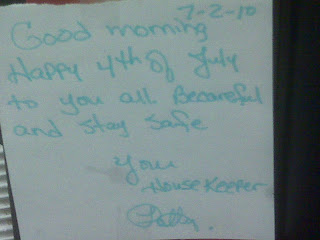 7-2-10
Good morning
Happy 4th of July
to you all Becareful
and stay safe
Your
House Keeper